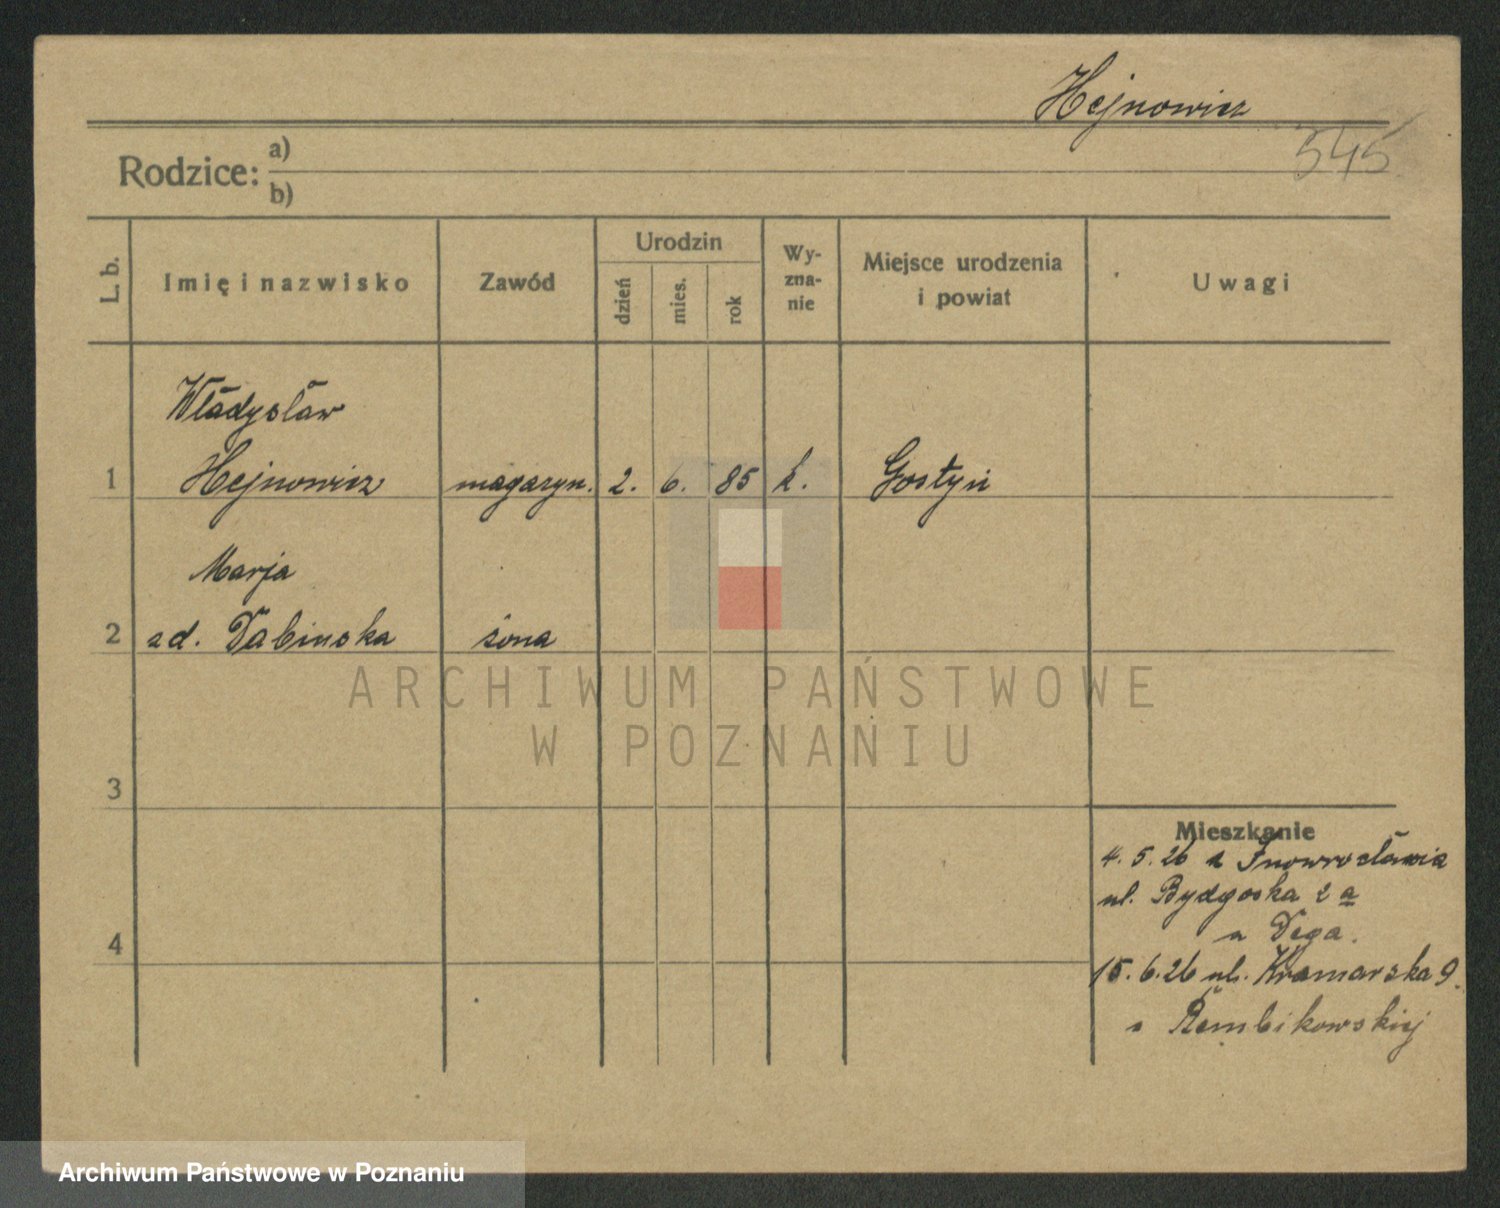 Hejnowicz
545
Rodzice: a)
b)
L. b.
Imię i nazwisko
Zawód
Urodzin
dzień
mies.
rok
Wy-
zna-
nie
Miejsce urodzenia
i powiat
Uwagi
Władysław
1 Hejnowicz magazyn. 2. 6. 85 k. Gostyń
Marja
2 zd. Dabinska żona
ARCHIWUM PAŃSTWOWE
W POZNANIU
3
Mieszkanie
4. 5. 26 z Inowrocławia
ul. Bydgoska 2 a
4
u Dega.
15. 6. 26 ul. Kramarska 9.
u Rembikowskiej
Archiwum Państwowe w Poznaniu